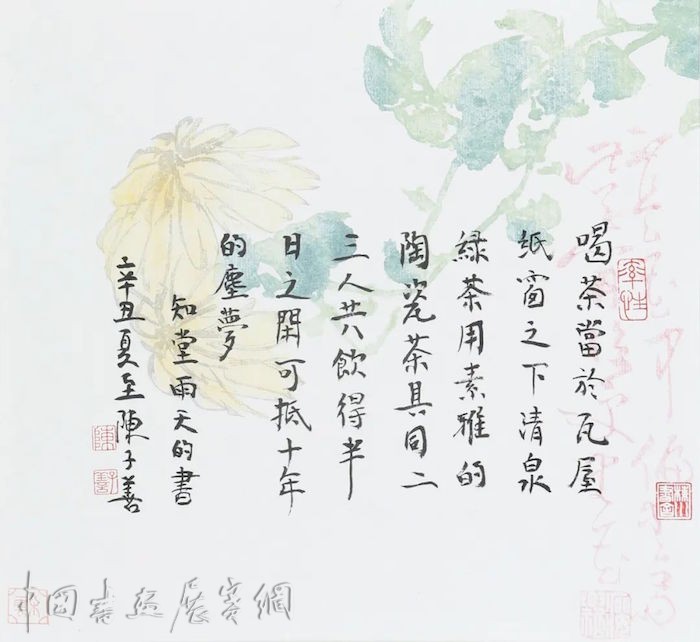 率性
喝茶當於瓦屋
紙窗之下清泉
綠茶用素雅的
陶瓷茶具同二
三人共飲得半
日之閒可抵十年
的塵夢
知堂雨天的書
辛丑夏至陳子善
陳
中國書畫展賽網